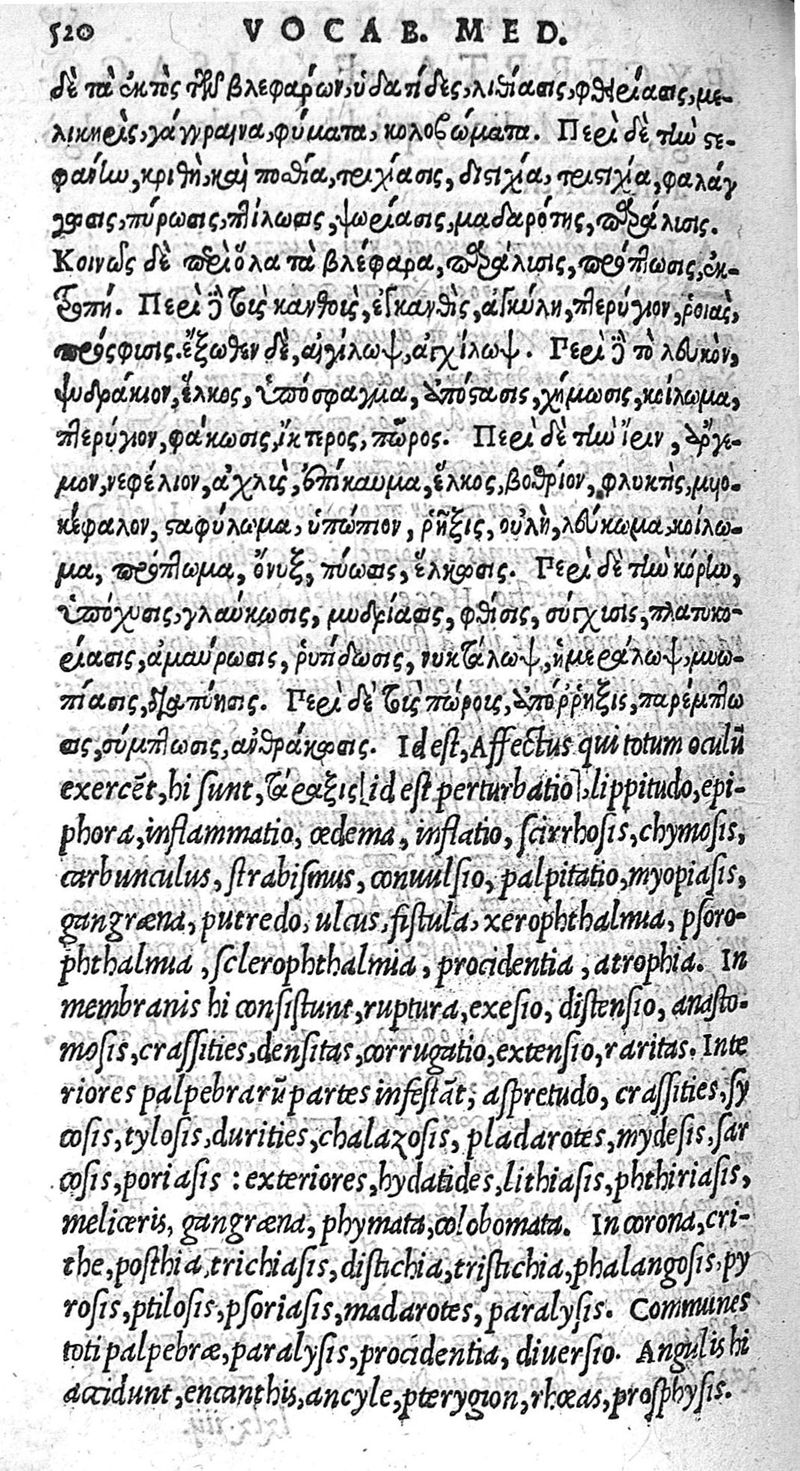 520 VOCAB. MED.
δὲ τὰ ἐκτὸς τῶν βλεφάρων, ὑδατίδες, λιθίασις, φθειρίασις, με-
λικηρὶς, γάγγραινα, φύματα, κολοβώματα. Περὶ δὲ τὴν στε-
φάνην, κριθὴ, καὶ ποσθία, τριχίασις, διστιχία, τριστιχία, φαλάγ
γωσις, πύρωσις, πτίλωσις, ψωρίασις, μαδαρότης, παράλισις.
Κοινῶς δὲ περὶ ὅλα τὰ βλέφαρα, παράλισις, πρόπτωσις, ἐκ-
τροπή. Περὶ δὲ τοῖς κανθοῖς, ἐγκανθὶς, ἀγκύλη, πτερύγιον, ῥοιὰς,
πρόσφισις. ἔξωθεν δὲ, αἰγίλωψ, ἀγχίλωψ. Περὶ δὲ τὸ λευκὸν,
ψυδράκιον, ἕλκος, ὑπόσφαγμα, ἀπόστασις, χήμωσις, κοίλωμα,
πτερύγιον, φάκωσις, ἴκτερος, πῶρος. Περὶ δὲ τὴν ἴριν, ἄργε-
μον, νεφέλιον, ἀχλὶς, ἐπίκαυμα, ἕλκος, βοθρίον, φλυκτὶς, μυο-
κέφαλον, σταφύλωμα, ὑπώπιον, ῥῆξις, οὐλὴ, λεύκωμα, κοίλω-
μα, πρόπτωμα, ὄνυξ, πύωσις, ἕλκωσις. Περὶ δὲ τὴν κόρην,
ὑπόχυσις, γλαύκωσις, μυδρίασις, φθίσις, σύγχισις, πλατυκο-
ρίασις, ἀμαύρωσις, ῥυτίδωσις, νυκτάλωψ, ἡμεράλωψ, μυω-
πίασις, διαπύησις. Περὶ δὲ τοῖς πώροις, ἀπόῤῥηξις, παρέμπτω
σις, σύμπτωσις, ἀνθράκωσις. Id est, Affectus qui totum oculũ
exercẽt, hi sunt, τάραξις [id est perturbatio], lippitudo, epi-
phora, inflammatio, œdema, inflatio, scirrhosis, chymosis,
carbunculus, strabismus, conuulsio, palpitatio, myopiasis,
gangræna, putredo, ulcus, fistula, xerophthalmia, psoro-
phthalmia, sclerophthalmia, procidentia, atrophia. In
membranis hi consistunt, ruptura, exesio, distensio, anasto-
mosis, crassities, densitas, corrugatio, extensio, raritas. Inte
riores palpebrarũ partes infestãt, aspretudo, crassities, sy
cosis, tylosis, durities, chalazosis, pladarotes, mydesis, sar
cosis, poriasis : exteriores, hydatides, lithiasis, phthiriasis,
meliceris, gangræna, phymata, colobomata. In corona, cri-
the, posthia, trichiasis, distichia, tristichia, phalangosis, py
rosis, ptilosis, psoriasis, madarotes, paralysis. Communes
toti palpebræ, paralysis, procidentia, diuersio. Angulis hi
accidunt, encanthis, ancyle, pterygion, rhœas, prosphysis.